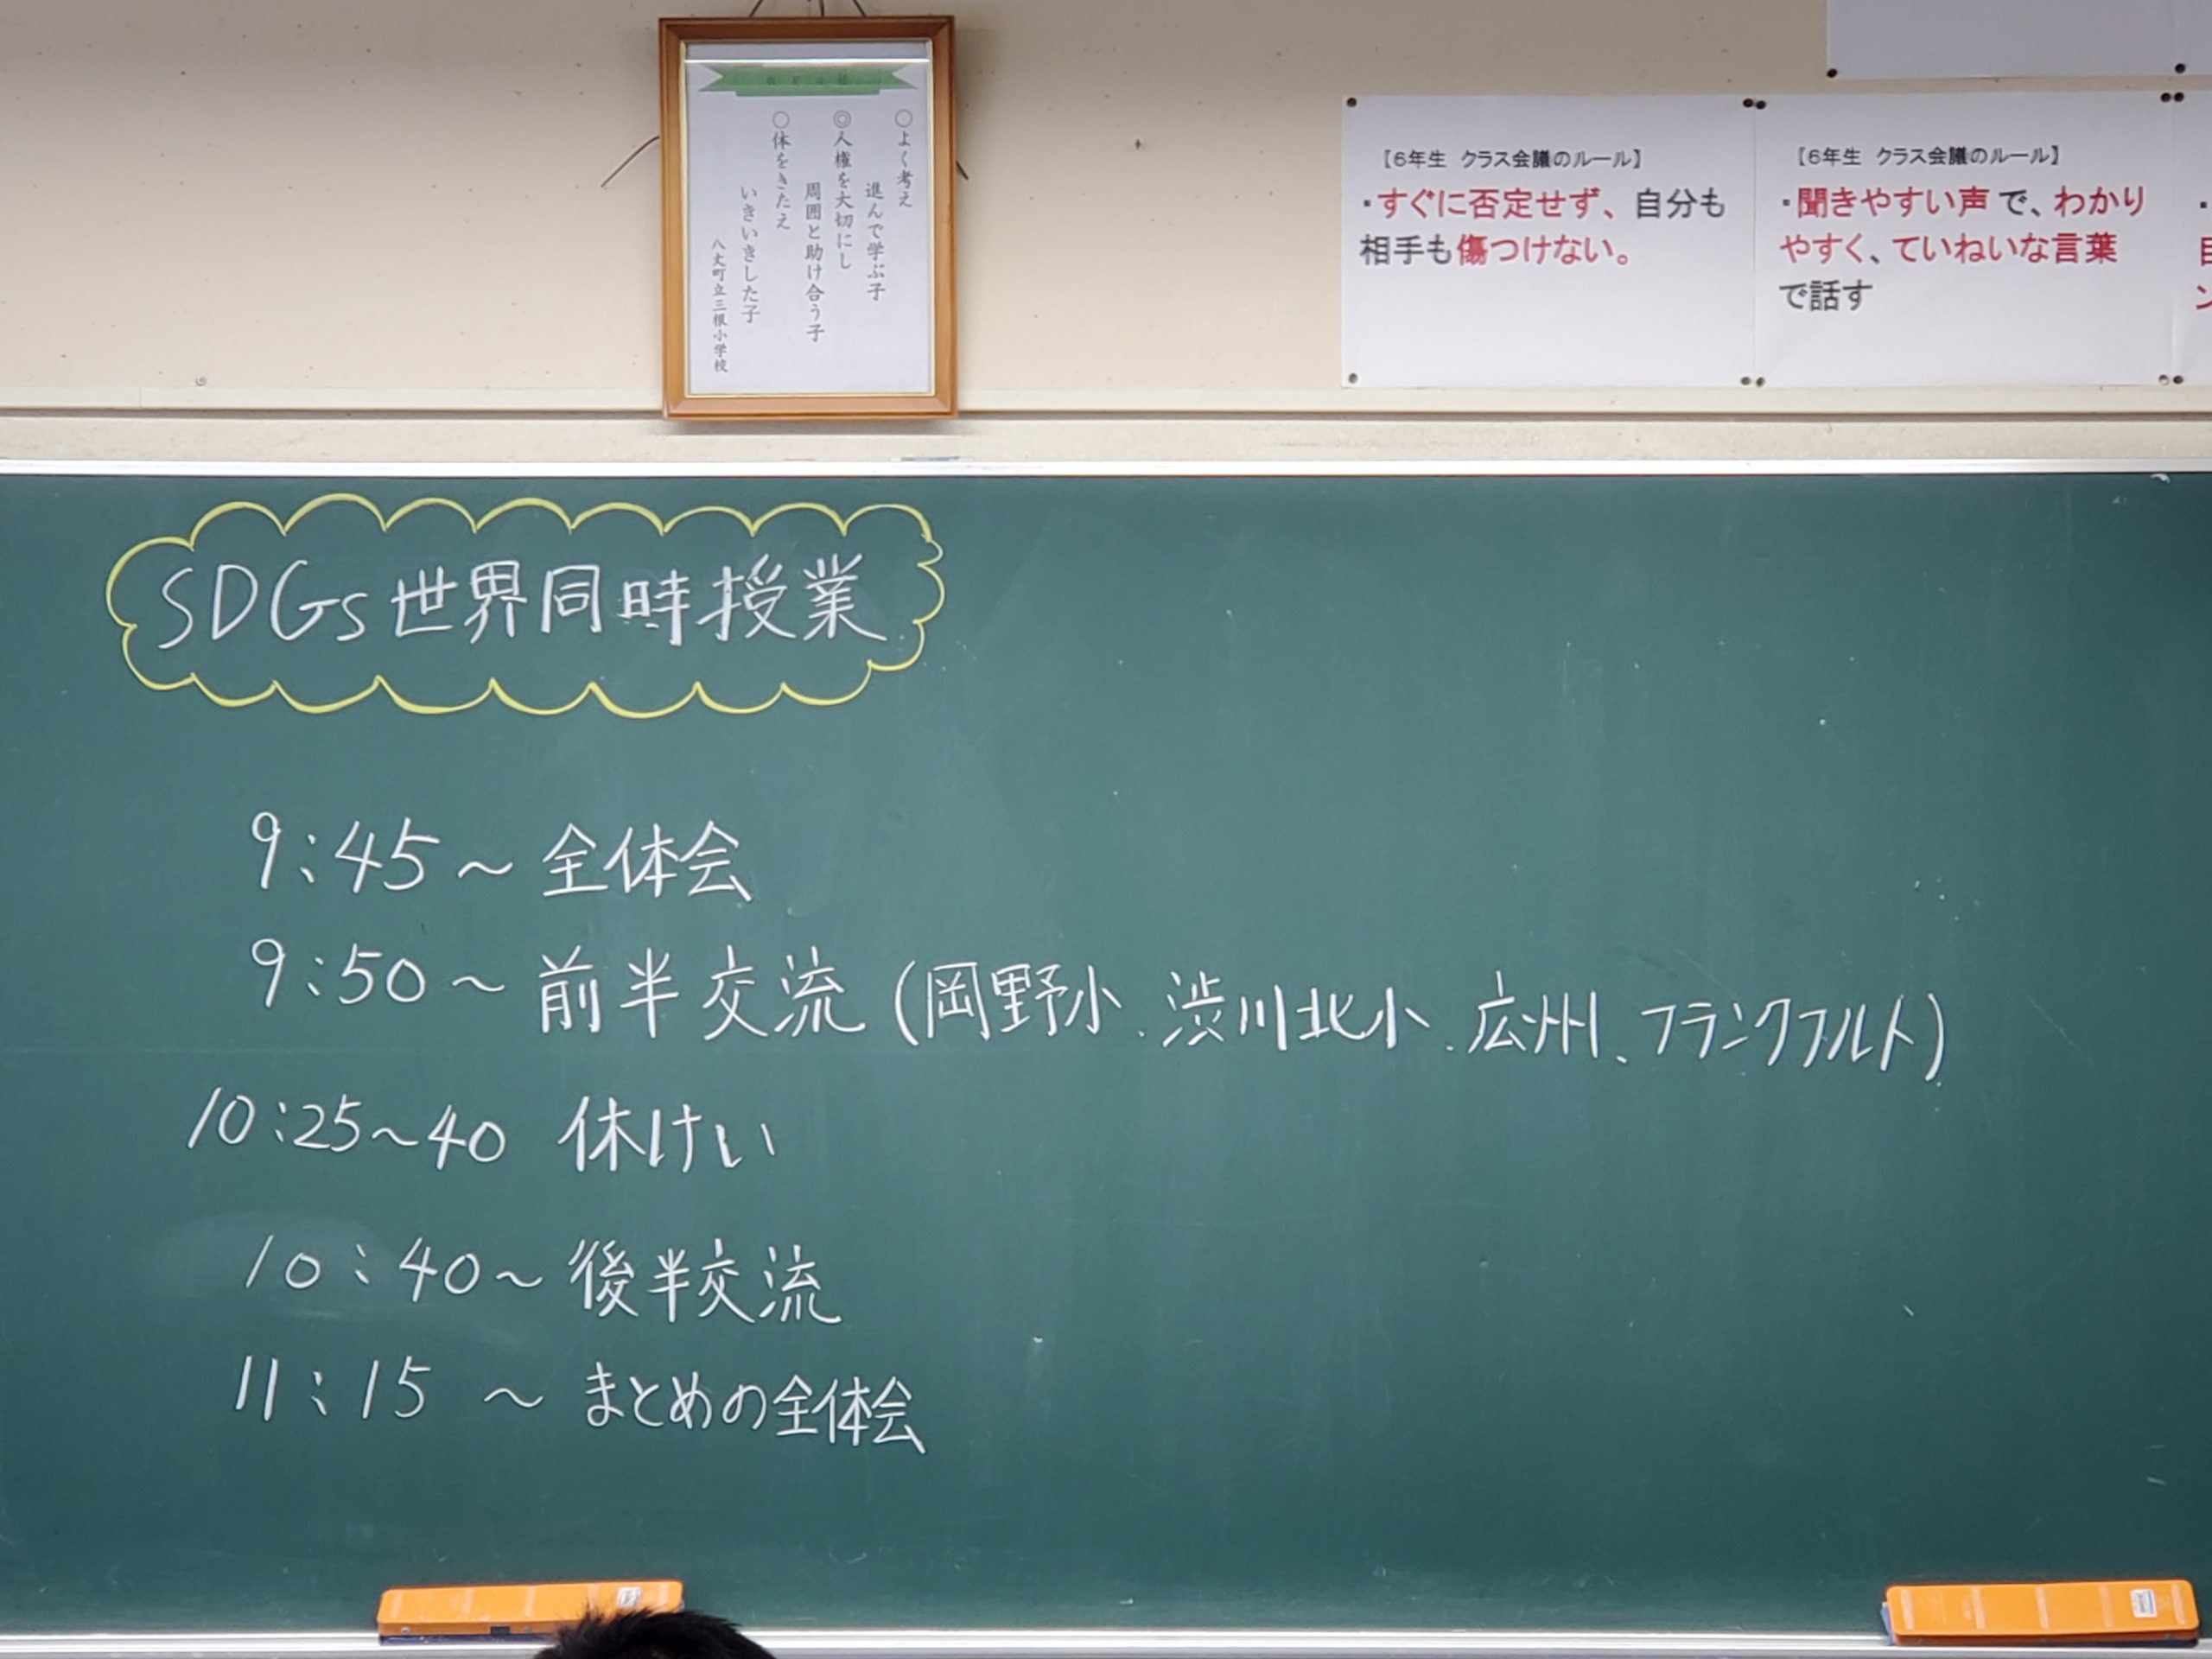 ○よく考え
進んで学ぶ子
◎人権を大切にし
周囲と助け合う子
○体をきたえ
いきいきした子
八丈町立三根小学校
【6年生 クラス会議のルール】
・すぐに否定せず、自分も
相手も傷つけない。
【6年生 クラス会議のルール】
・聞きやすい声で、わかり
やすく、ていねいな言葉
で話す
SDGs世界同時授業
9:45～全体会
9:50～前半交流(岡野小、渋川北小、広州、フランクフルト)
10:25～40 休けい
10:40～後半交流
11:15～まとめの全体会